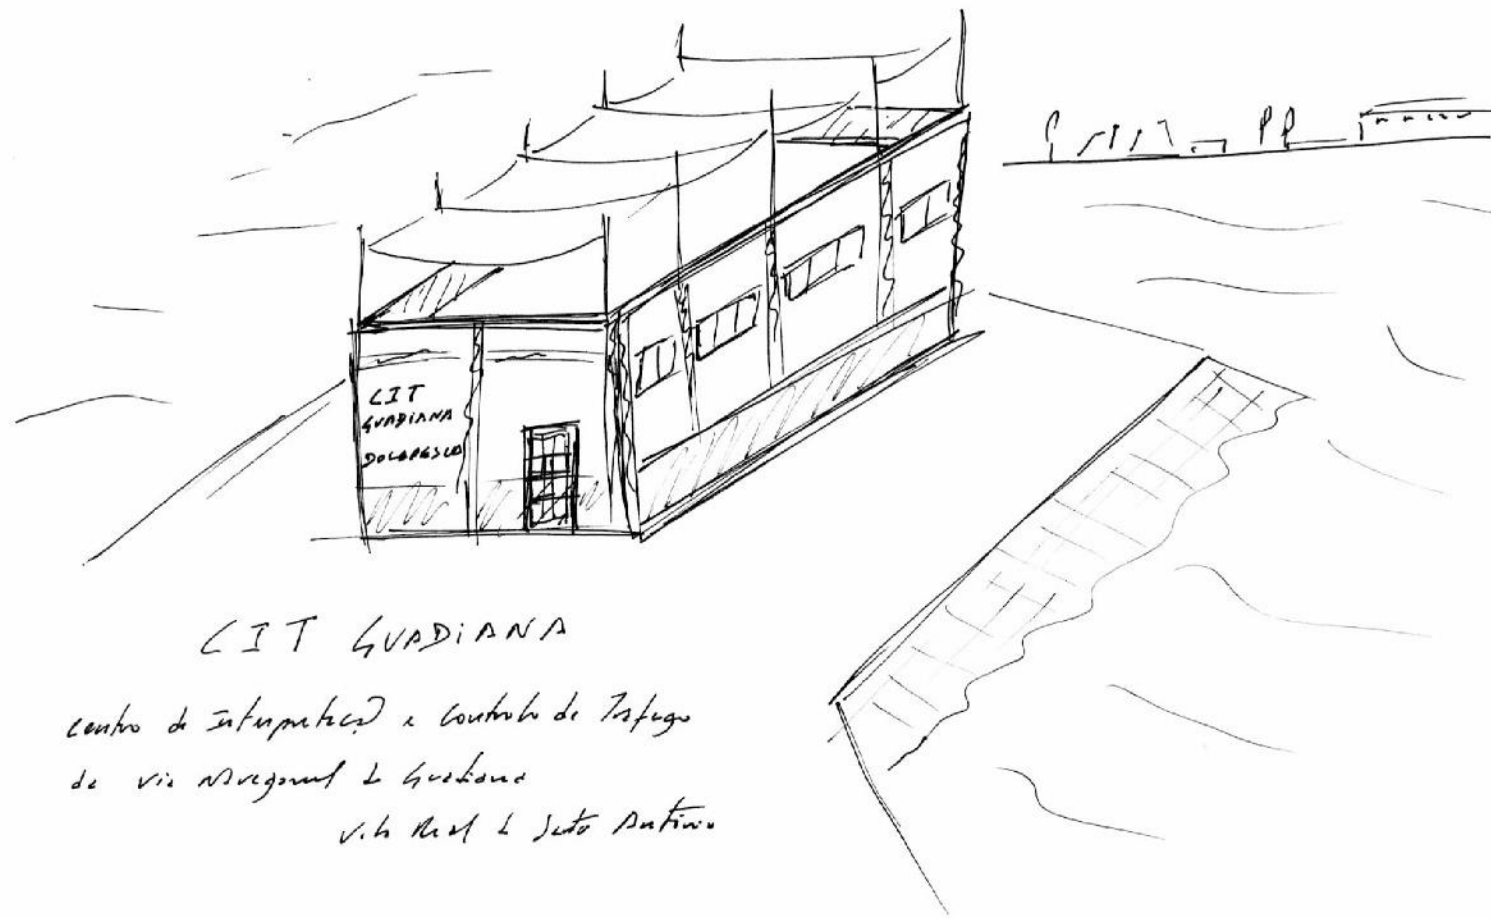 CIT
GUADIANA
DOCAPESCA
CIT GUADIANA
Centro de Interpretação e Controlo de Tráfego
da via Navegável do Guadiana
Vila Real de Santo António